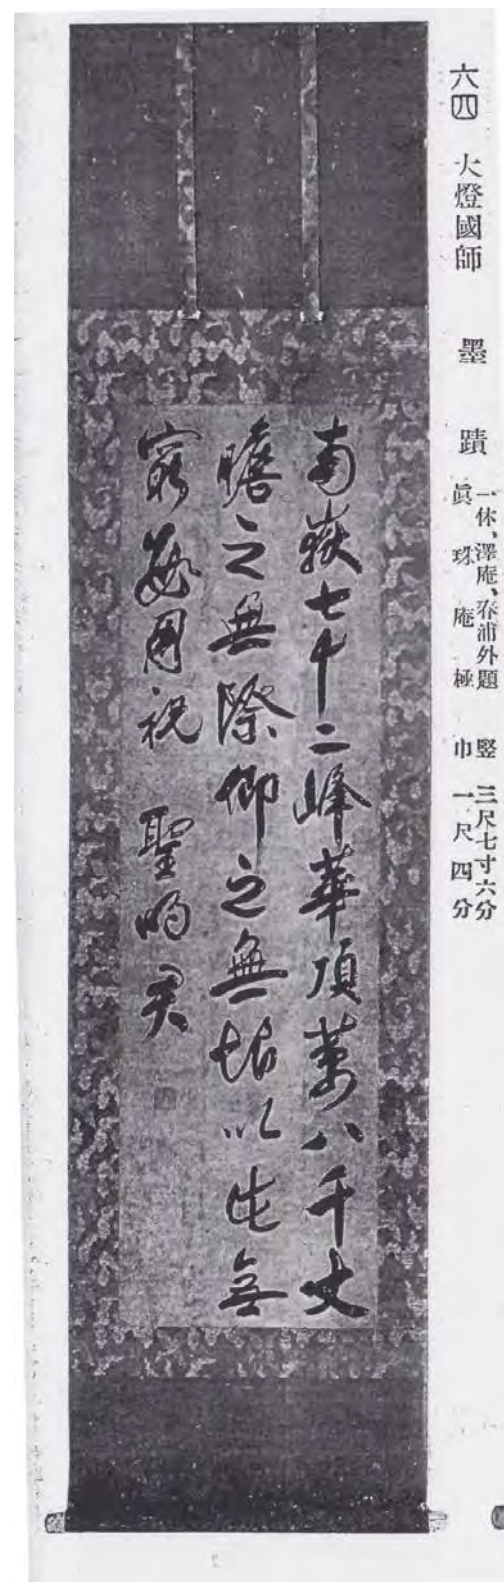 六四 大燈國師 墨蹟
一休、澤庵、春浦外題 竪 三尺七寸六分
眞珠庵極 巾 一尺四分
南嶽七十二峰華頂萬八千丈
瞻之無際仰之無垠以此無
窮用祝 聖明君